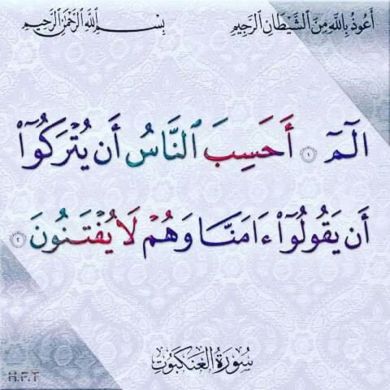 أَعُوذُ بِاللَّهِ مِنَ الشَّيْطَانِ الرَّجِيمِ
بِسْمِ ٱللَّهِ ٱلرَّحْمَٰنِ ٱلرَّحِيمِ
الٓمٓ ۝١ أَحَسِبَ ٱلنَّاسُ أَن يُتْرَكُوٓا۟
أَن يَقُولُوٓا۟ ءَامَنَّا وَهُمْ لَا يُفْتَنُونَ ۝٢
سُورَةُ العَنكَبُوت
H.F.T